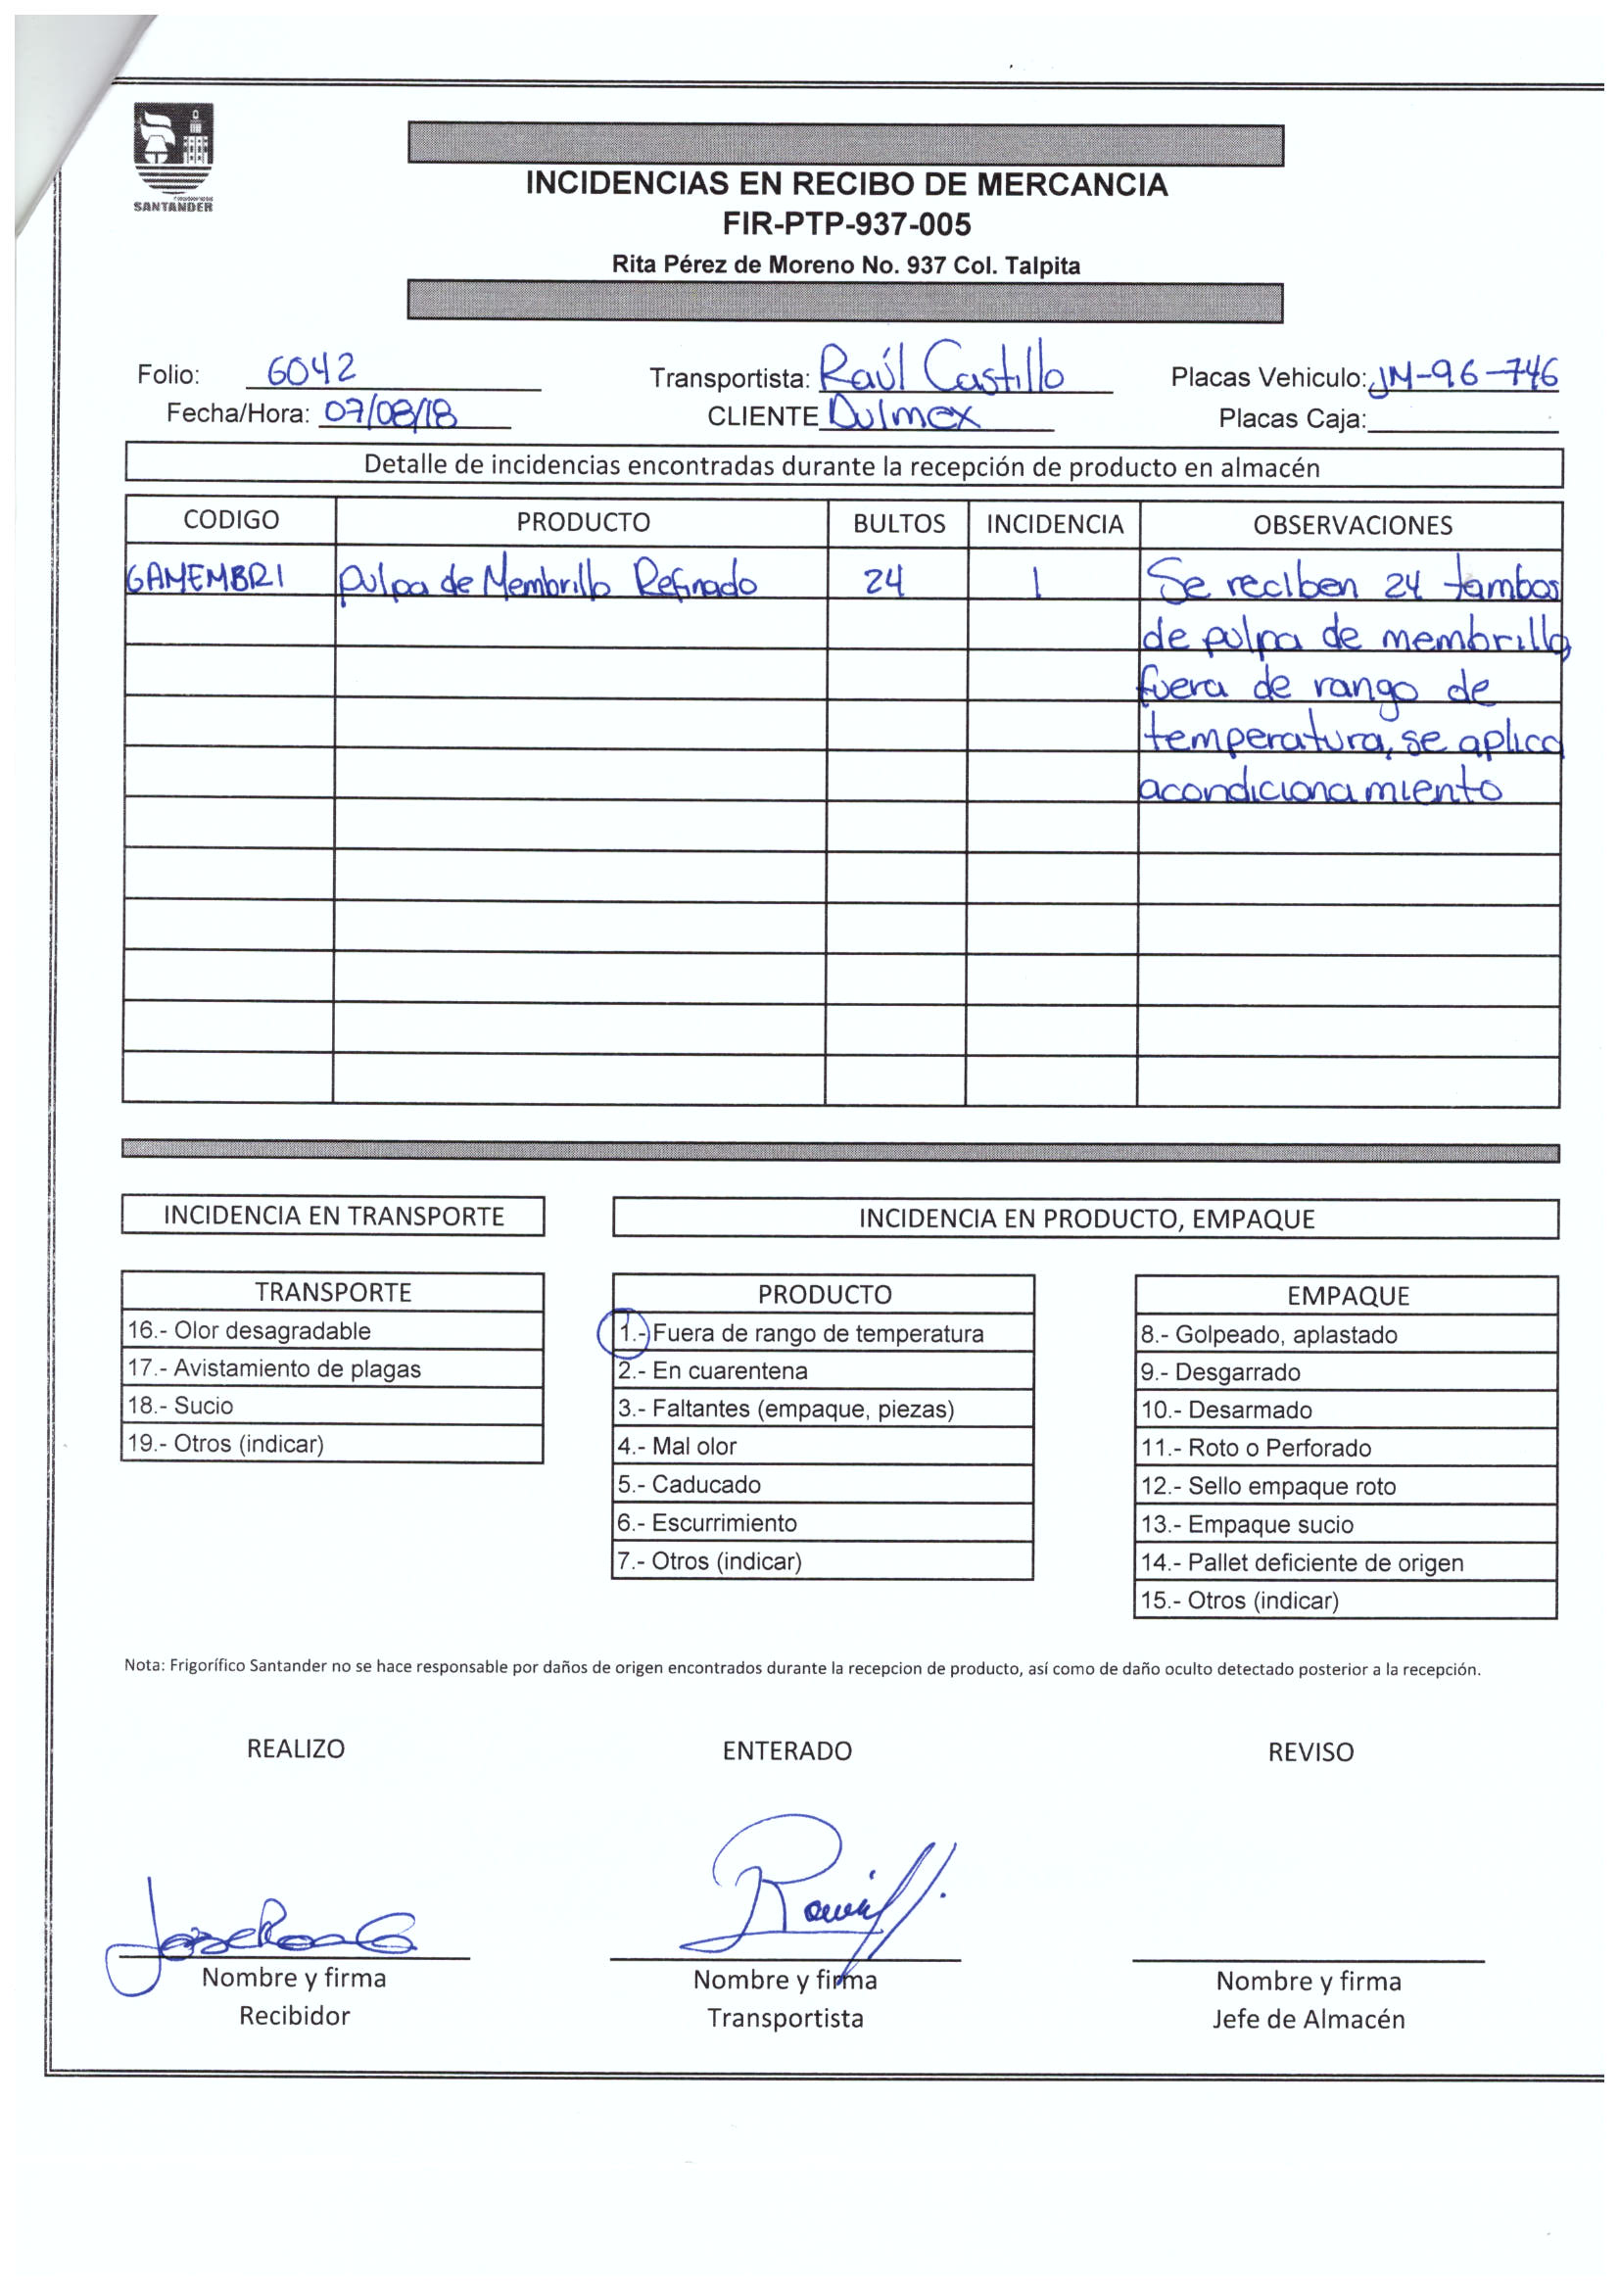 SANTANDER
INCIDENCIAS EN RECIBO DE MERCANCIA
FIR-PTP-937-005
Rita Pérez de Moreno No. 937 Col. Talpita
Folio: 6042 Transportista: Raúl Castillo Placas Vehiculo: JM-96-746
Fecha/Hora: 07/08/18 CLIENTE Dulmex Placas Caja:
Detalle de incidencias encontradas durante la recepción de producto en almacén
CODIGO PRODUCTO BULTOS INCIDENCIA OBSERVACIONES
GAMEMBRI pulpa de Membrillo Refinado 24 1 Se reciben 24 tambos
de pulpa de membrillo
fuera de rango de
temperatura, se aplica
acondicionamiento
INCIDENCIA EN TRANSPORTE
INCIDENCIA EN PRODUCTO, EMPAQUE
TRANSPORTE
16.- Olor desagradable
17.- Avistamiento de plagas
18.- Sucio
19.- Otros (indicar)
PRODUCTO
1.- Fuera de rango de temperatura
2.- En cuarentena
3.- Faltantes (empaque, piezas)
4.- Mal olor
5.- Caducado
6.- Escurrimiento
7.- Otros (indicar)
EMPAQUE
8.- Golpeado, aplastado
9.- Desgarrado
10.- Desarmado
11.- Roto o Perforado
12.- Sello empaque roto
13.- Empaque sucio
14.- Pallet deficiente de origen
15.- Otros (indicar)
Nota: Frigorífico Santander no se hace responsable por daños de origen encontrados durante la recepcion de producto, así como de daño oculto detectado posterior a la recepción.
REALIZO ENTERADO REVISO
Nombre y firma Nombre y firma Nombre y firma
Recibidor Transportista Jefe de Almacén